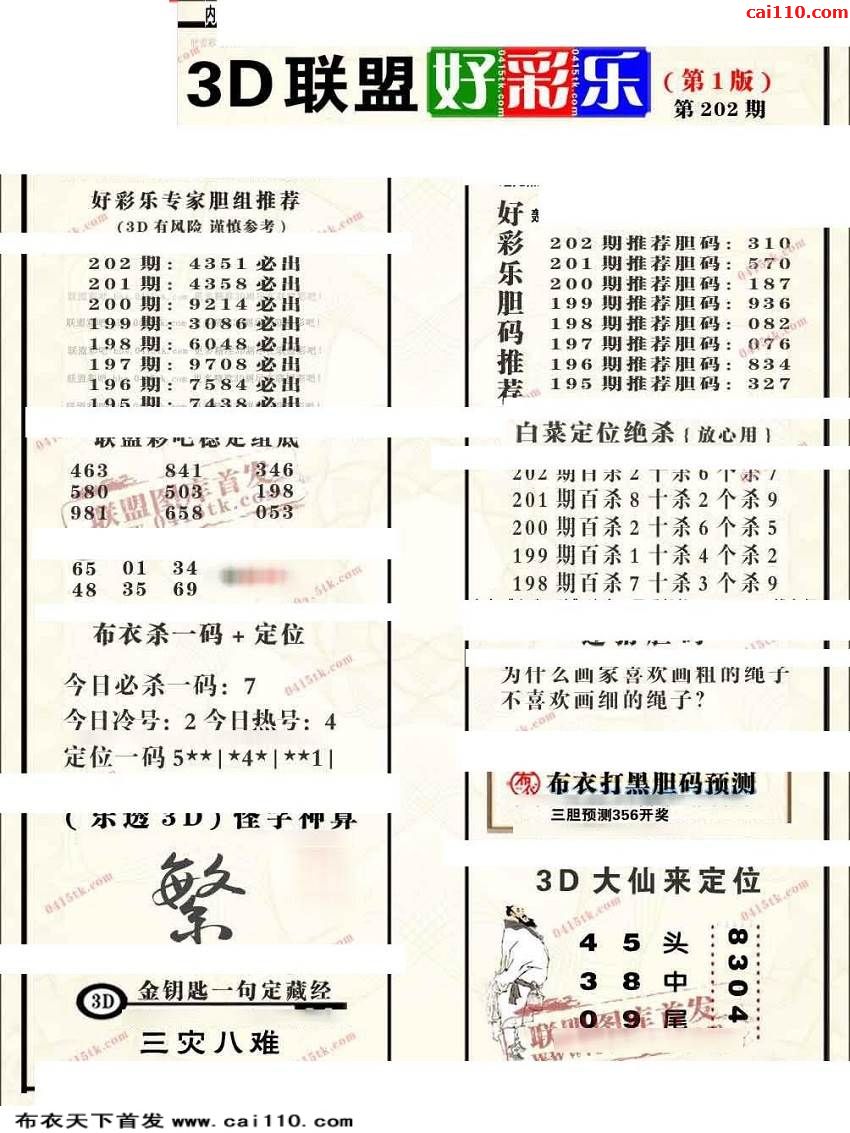 cai110.com
内
3D联盟好彩乐(第1版)
第202期
好彩乐专家胆组推荐
(3D有风险 谨慎参考)
202期: 4351必出
201期: 4358必出
200期: 9214必出
199期: 3086必出
198期: 6048必出
197期: 9708必出
196期: 7584必出
195期: 7438必出
联盟彩吧稳定组底
463 841 346
580 503 198
981 658 053
65 01 34
48 35 69
布衣杀一码+定位
今日必杀一码: 7
今日冷号: 2 今日热号: 4
定位一码5**|*4*|**1|
(乐透3D)怪字神算
繁
3D 金钥匙一句定藏经
三灾八难
好彩乐胆码推荐
202期推荐胆码: 310
201期推荐胆码: 570
200期推荐胆码: 187
199期推荐胆码: 936
198期推荐胆码: 082
197期推荐胆码: 076
196期推荐胆码: 834
195期推荐胆码: 327
白菜定位绝杀{放心用}
202期百杀2十杀6个杀7
201期百杀8十杀2个杀9
200期百杀2十杀6个杀5
199期百杀1十杀4个杀2
198期百杀7十杀3个杀9
为什么画家喜欢画粗的绳子
不喜欢画细的绳子?
布衣打黑胆码预测
三胆预测356开奖
3D大仙来定位
4 5 头
3 8 中
0 9 尾
8304
联盟图库首发
0415tk.com
布衣天下首发 www.cai110.com